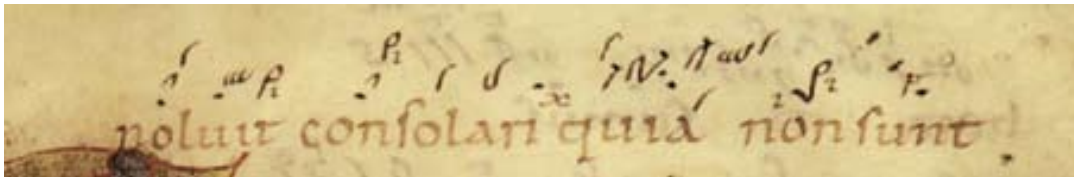 noluit consolari quia non sunt